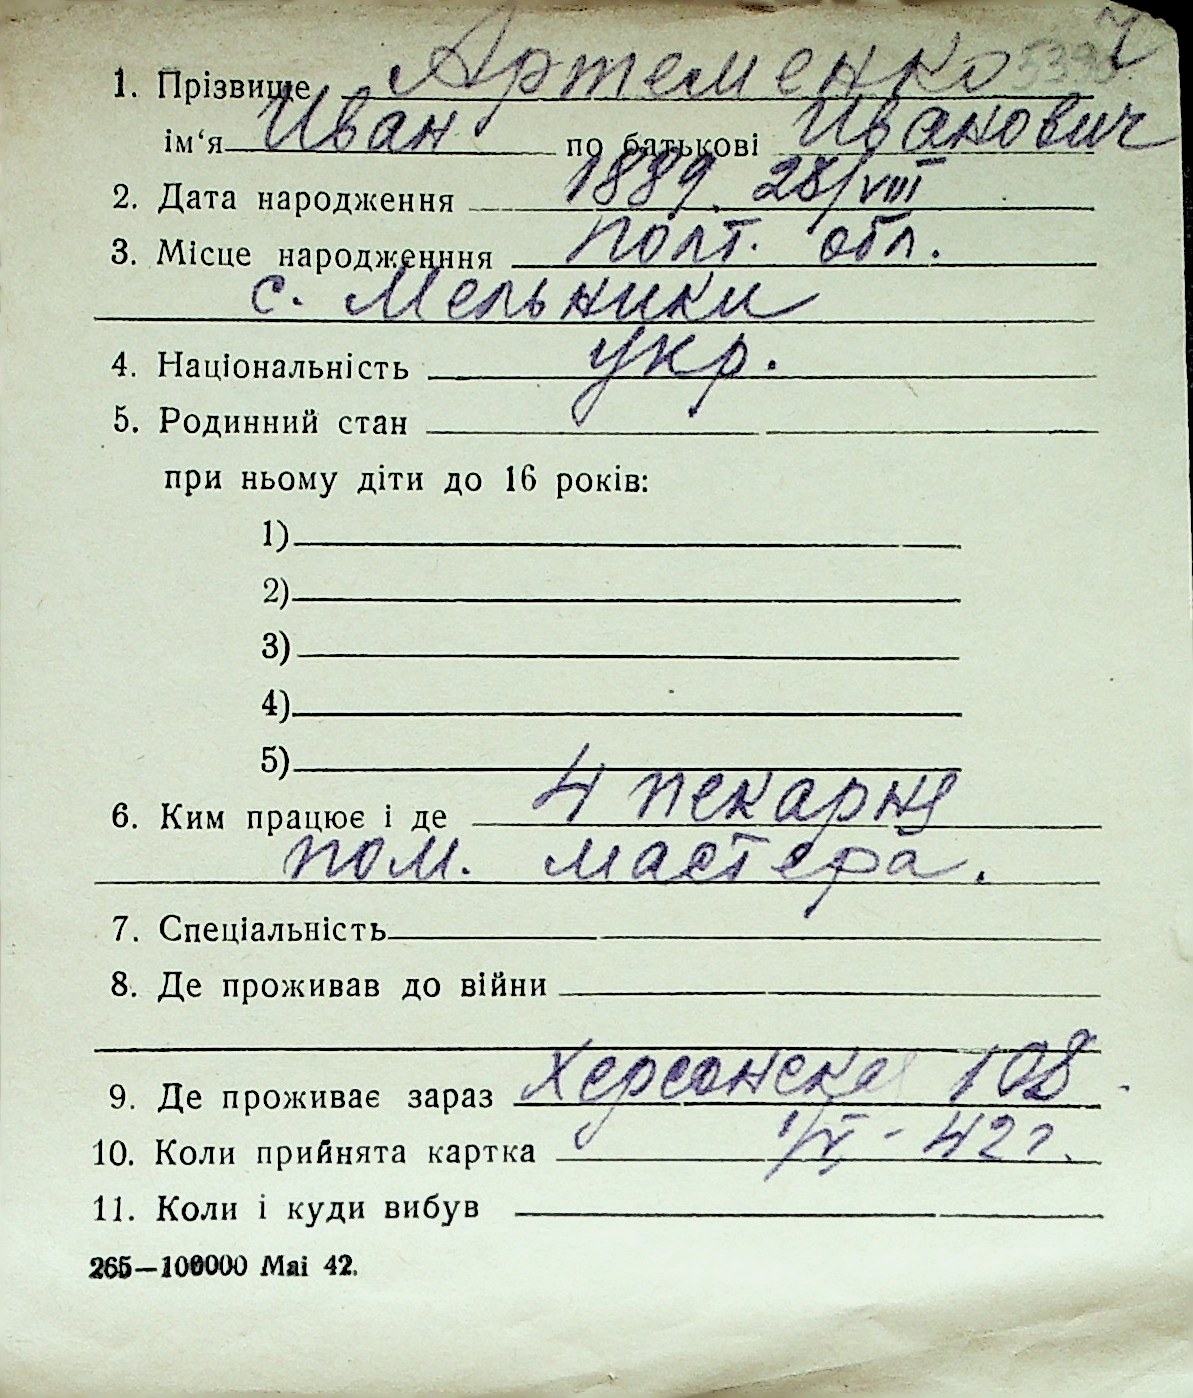 7
1. Прізвище Артеменко
ім‘я Иван по батькові Иванович
2. Дата народження 1889. 28/VIII
3. Місце народженння Полт. обл.
с. Мельники
4. Національність укр.
5. Родинний стан
при ньому діти до 16 років:
1)
2)
3)
4)
5)
6. Ким працює і де 4 пекарня
пом. мастера.
7. Спеціальність
8. Де проживав до війни
9. Де проживає зараз Херсонская 108
10. Коли прийнята картка - 42 г.
11. Коли і куди вибув
265—100000 Mai 42.